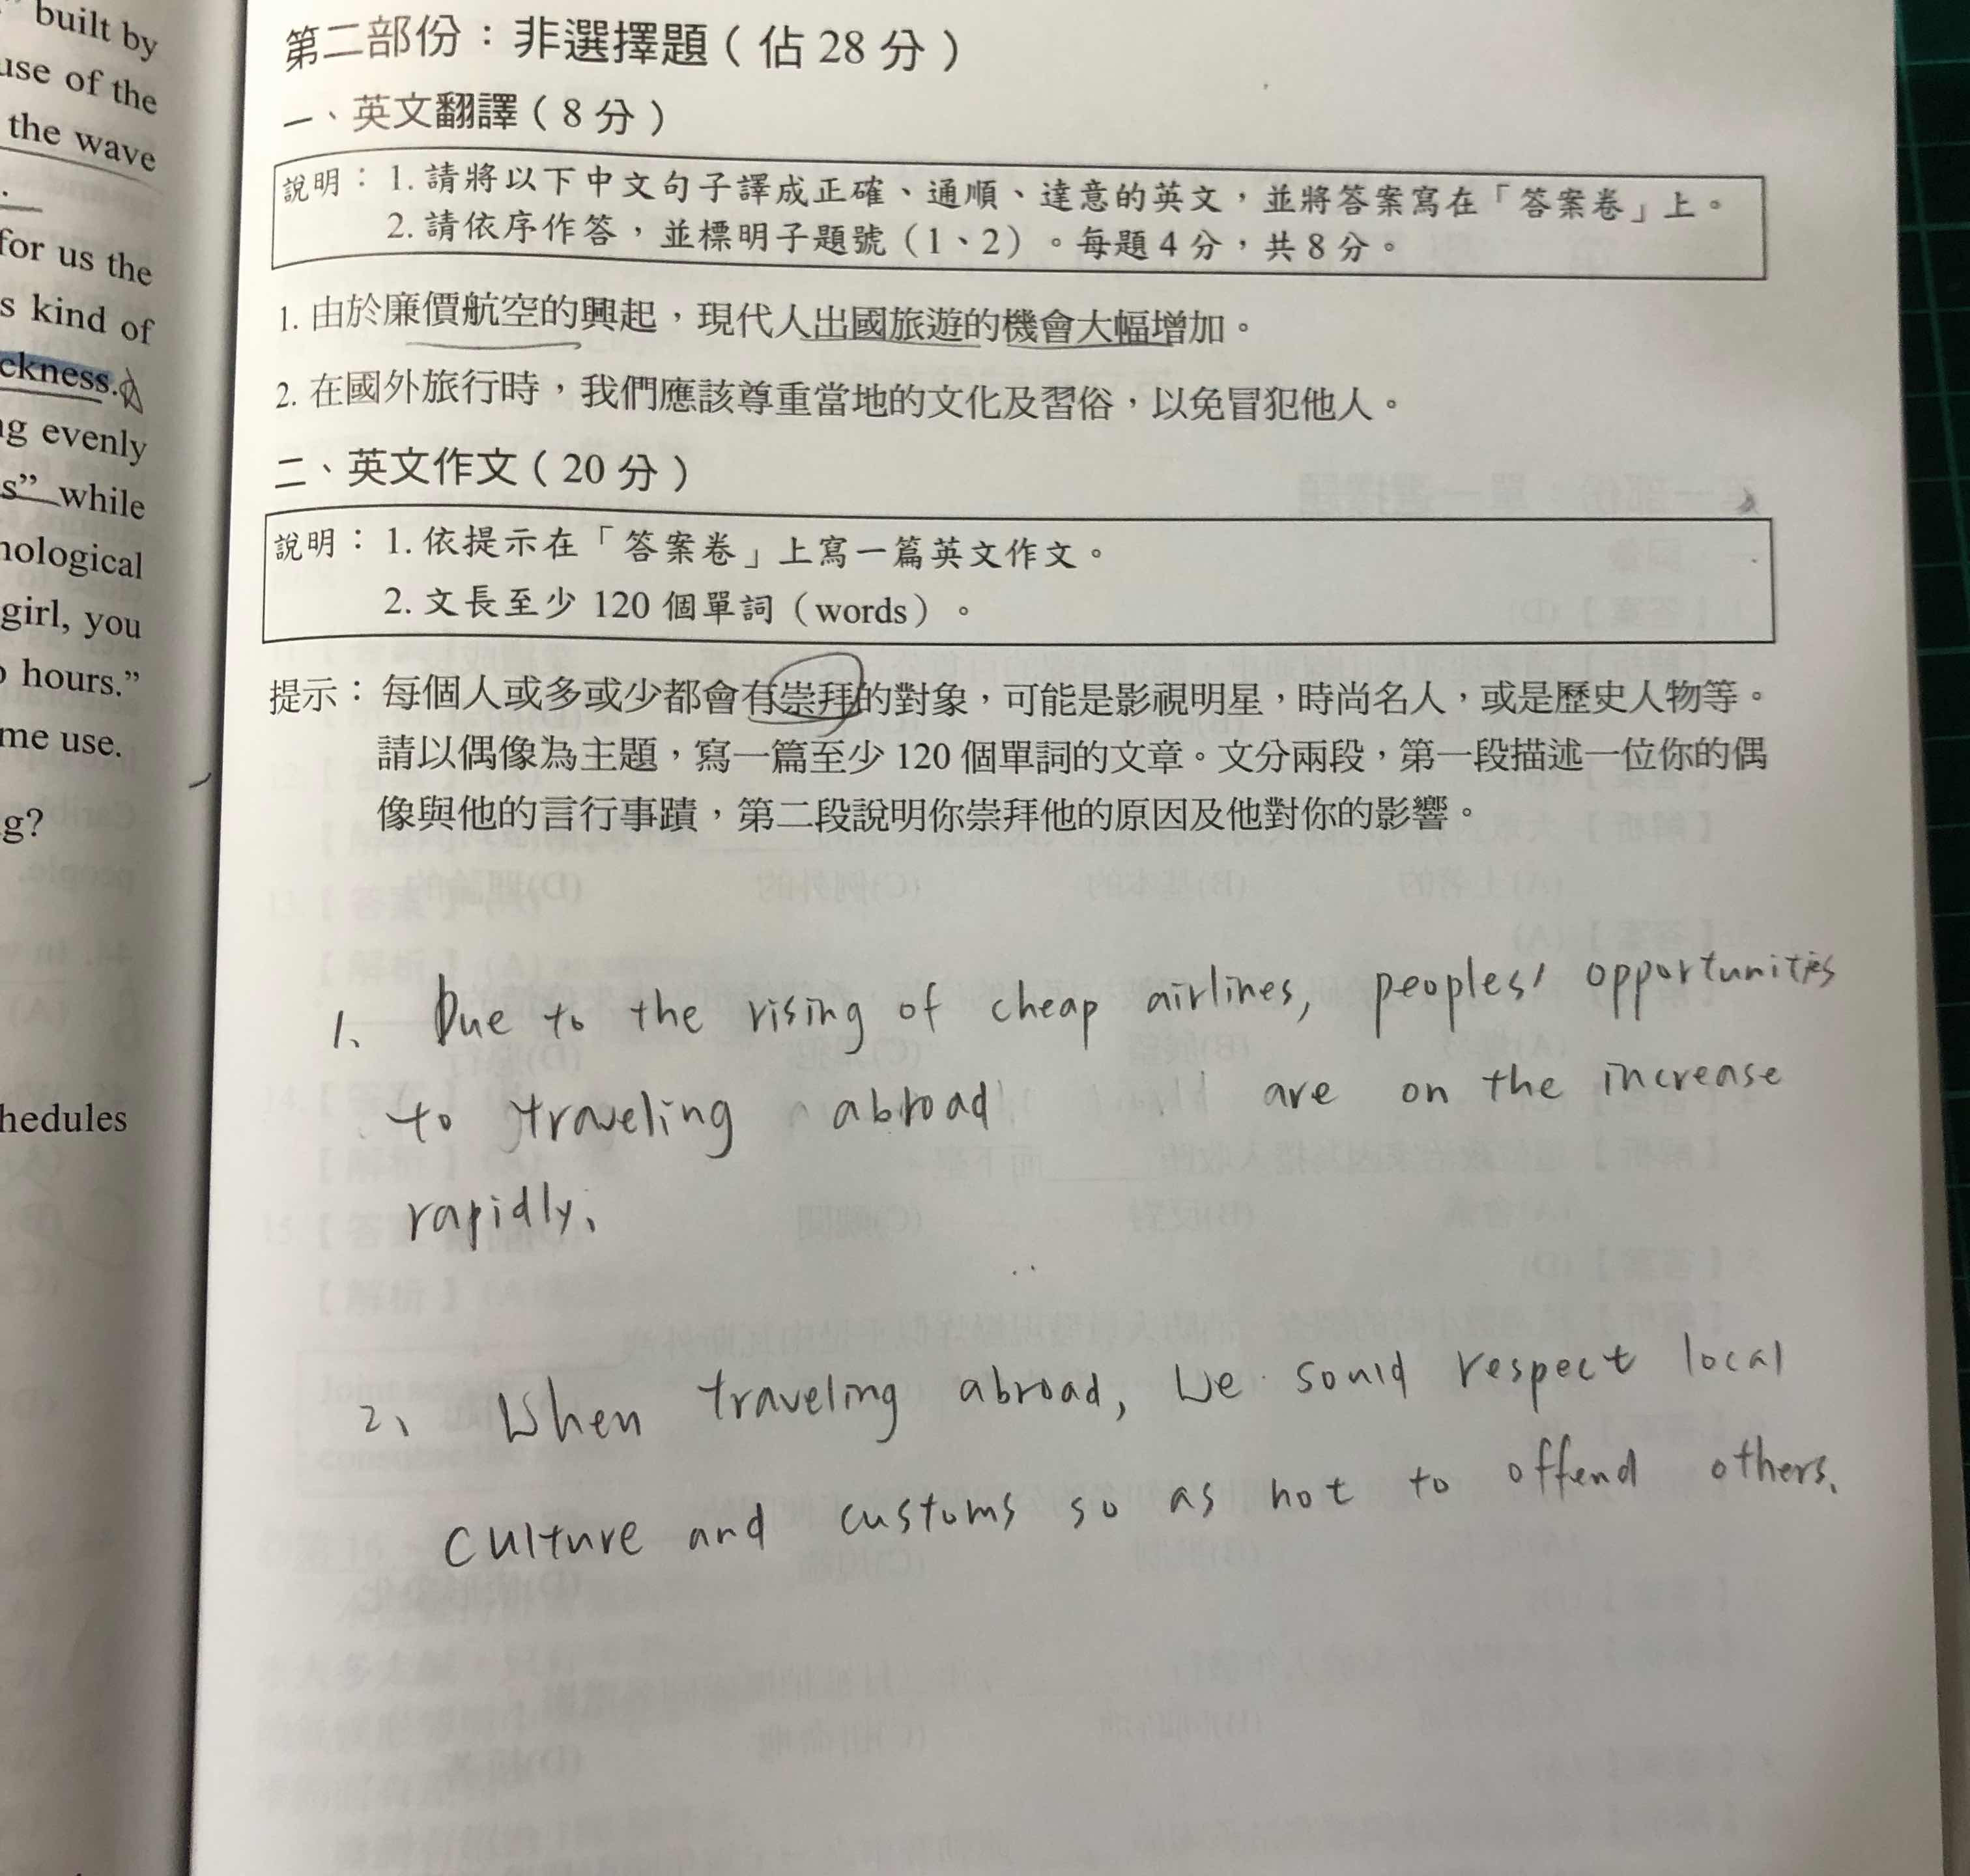 built by
use of the
the wave
for us the
s kind of
ckness.
ng evenly
s” while
nological
girl, you
hours.”
me use.
g?
hedules
第二部份：非選擇題（佔 28 分）
一、英文翻譯（8 分）
說明：1. 請將以下中文句子譯成正確、通順、達意的英文，並將答案寫在「答案卷」上。
2. 請依序作答，並標明子題號（1、2）。每題 4 分，共 8 分。
1. 由於廉價航空的興起，現代人出國旅遊的機會大幅增加。
2. 在國外旅行時，我們應該尊重當地的文化及習俗，以免冒犯他人。
二、英文作文（20 分）
說明：1. 依提示在「答案卷」上寫一篇英文作文。
2. 文長至少 120 個單詞（words）。
提示：每個人或多或少都會有崇拜的對象，可能是影視明星，時尚名人，或是歷史人物等。
請以偶像為主題，寫一篇至少 120 個單詞的文章。文分兩段，第一段描述一位你的偶
像與他的言行事蹟，第二段說明你崇拜他的原因及他對你的影響。
1、 Due to the rising of cheap airlines, peoples' opportunities
to traveling abroad are on the increase
rapidly.
2、 When traveling abroad, we sould respect local
culture and customs so as not to offend others.